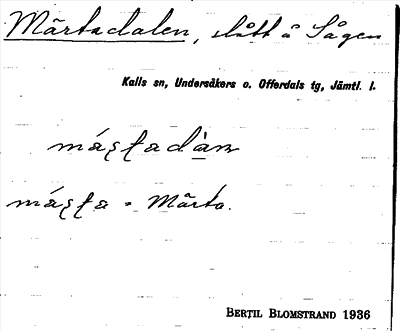 Märtadalen, slått å Sågen
Kalls sn, Undersåkers o. Offerdals tg, Jämtl. l.
máʂʈadàn
máʂʈa = Märta.
BERTIL BLOMSTRAND 1936